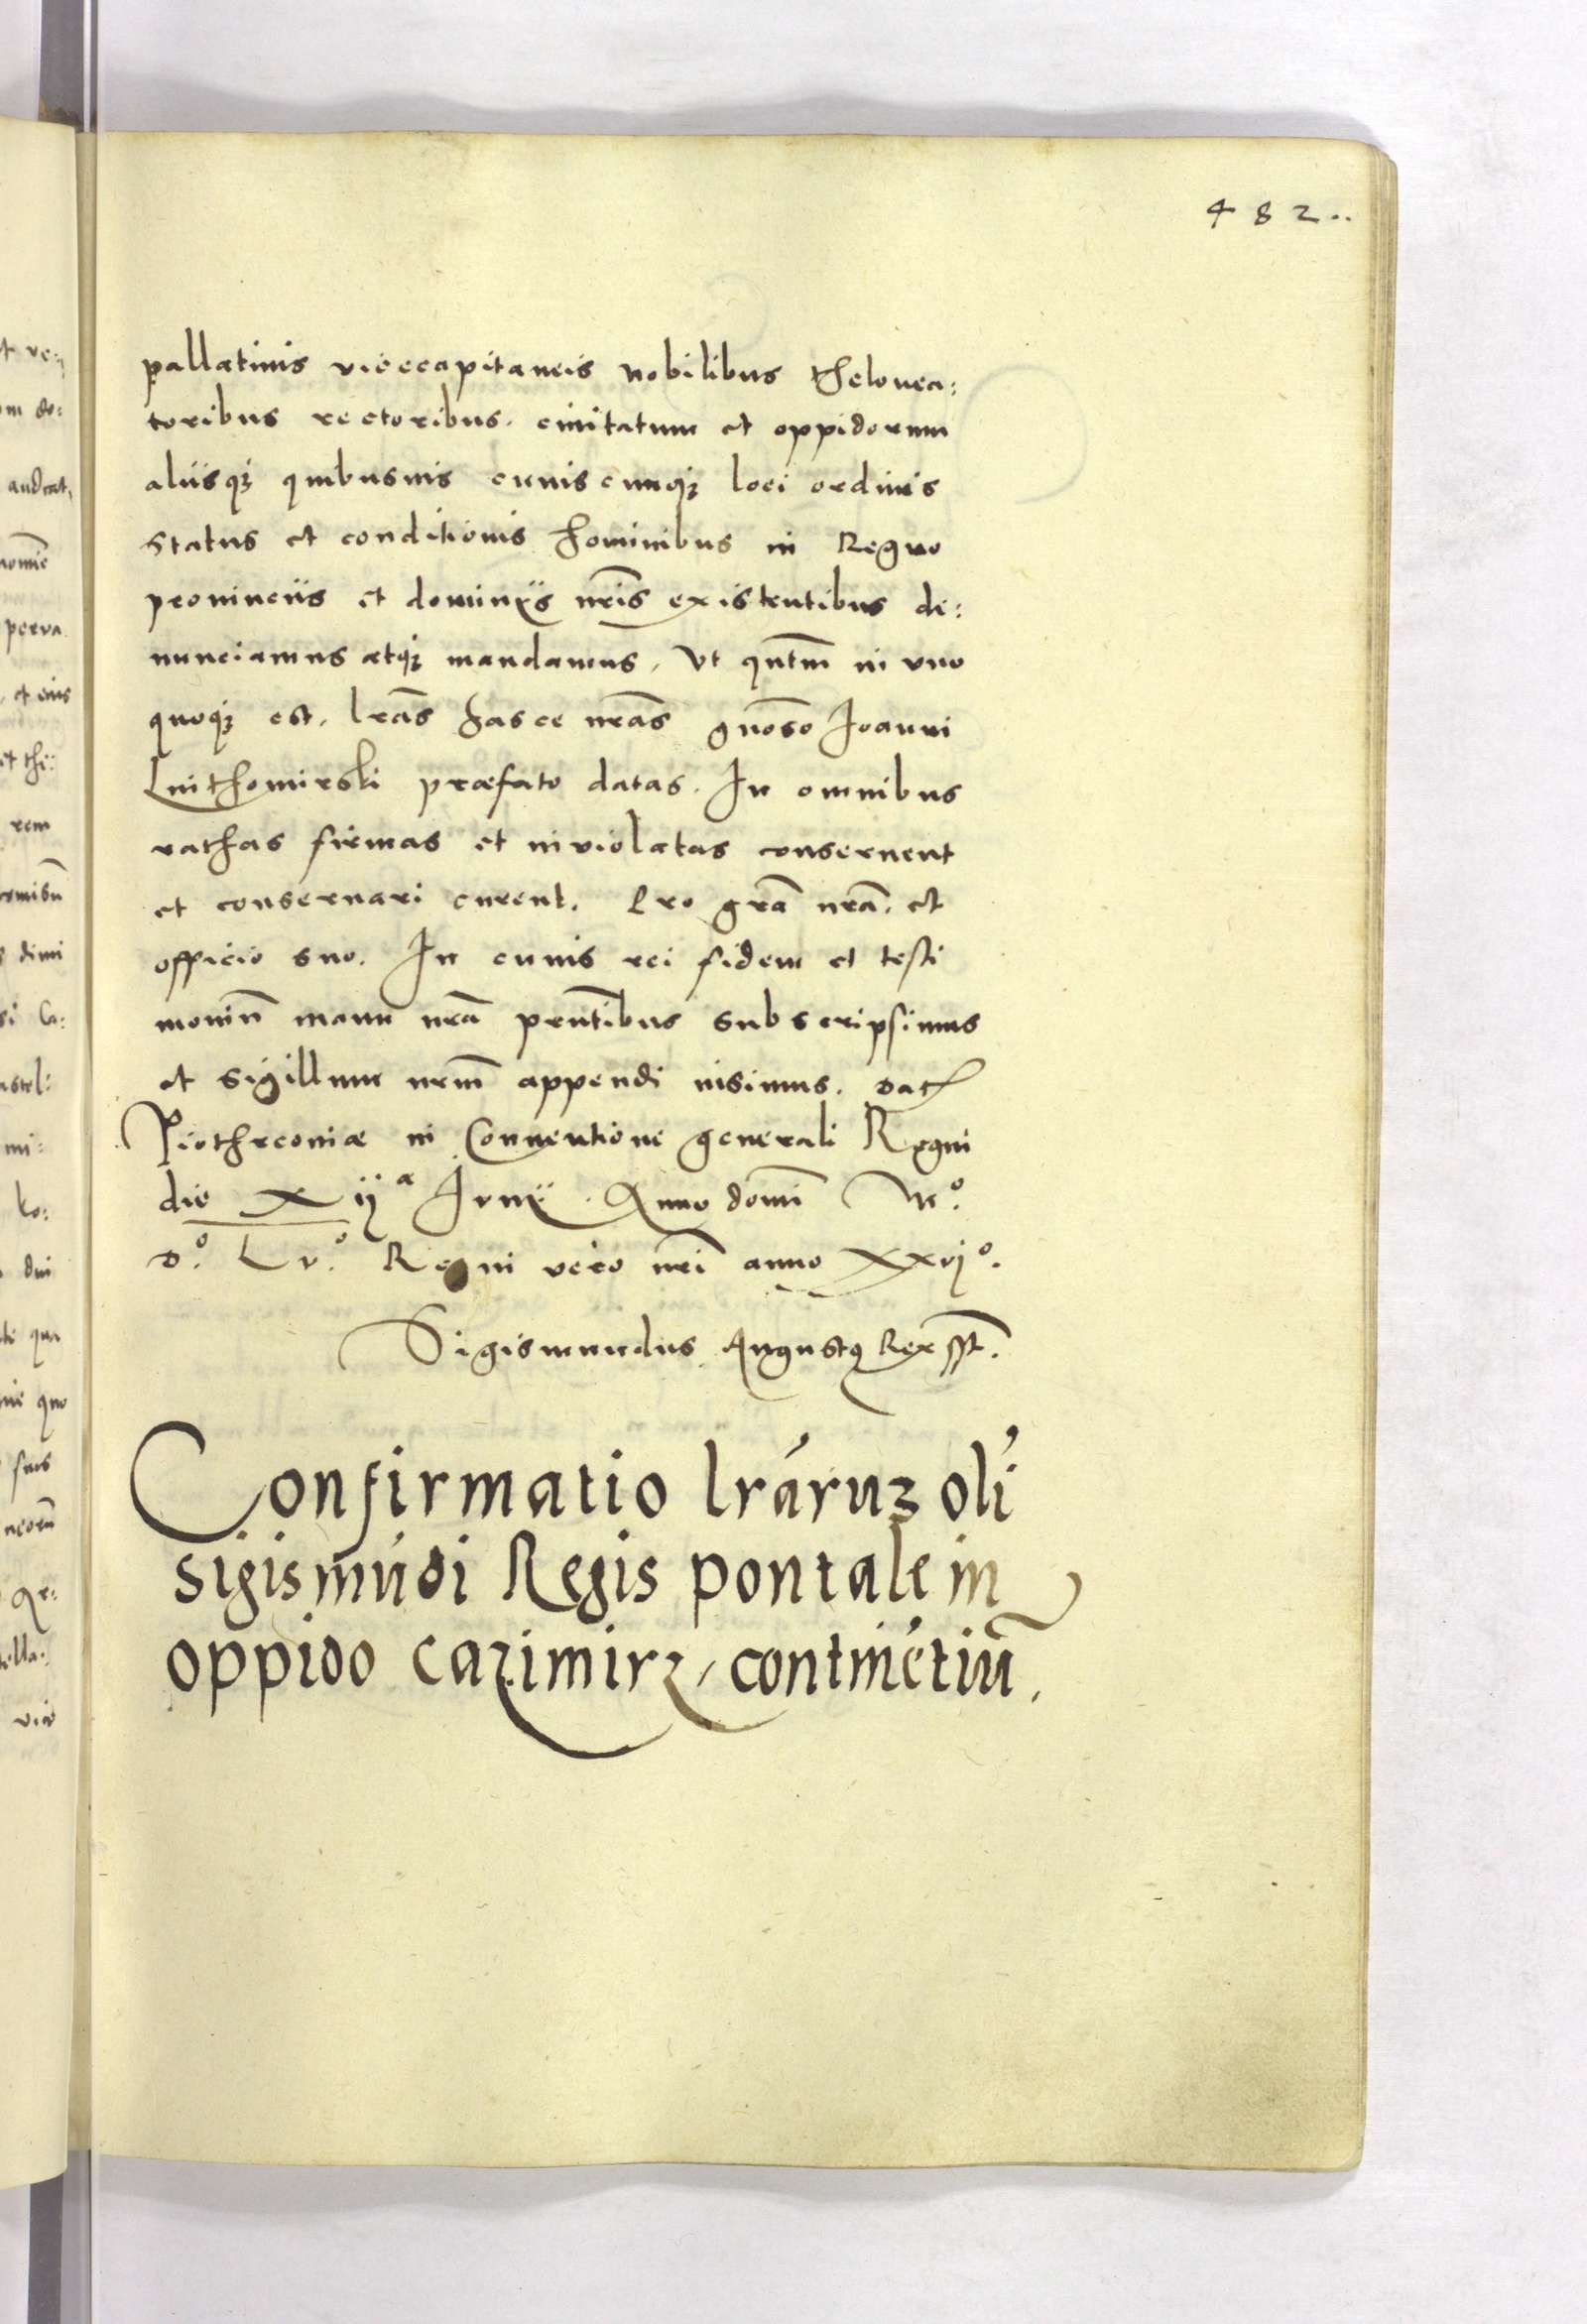 482..
pallatinis vicecapitaneis nobilibus thelonea:
toribus rectoribus. civitatum et oppidorum
aliisqȝ quibusuis cuiuscunqȝ loci ordinis
status et conditionis hominibus in Regno
provinciis et dominÿs nr̄is existentibus de:
nunciamus atqȝ mandamus, Vt qntm̄ in vno
quoqȝ est, lrās hasce nrās gn̄oso Joanni
Luithomirski præfato datas. In omnibus
rathas firmas et inviolatas conservent
et conservari curent. Pro grā nrā. et
officio suo. In cuius rei fidem et testi
moniū manu nrā prn̄tibus subscripsimus
et sigillum nrm̄ appendi iusimus. Dat
Piothrconiæ in Conventione generali Regni
die Xijª Junÿ. Anno domī Mº.
Dº. Lvº. Regni vero nrī anno xxvjº.
Sigismundus Augustq Rex sst.
Confirmatio lrāruȝ oli
sigismūdi Regis pontale in
oppido Cazimirz, continētiū.